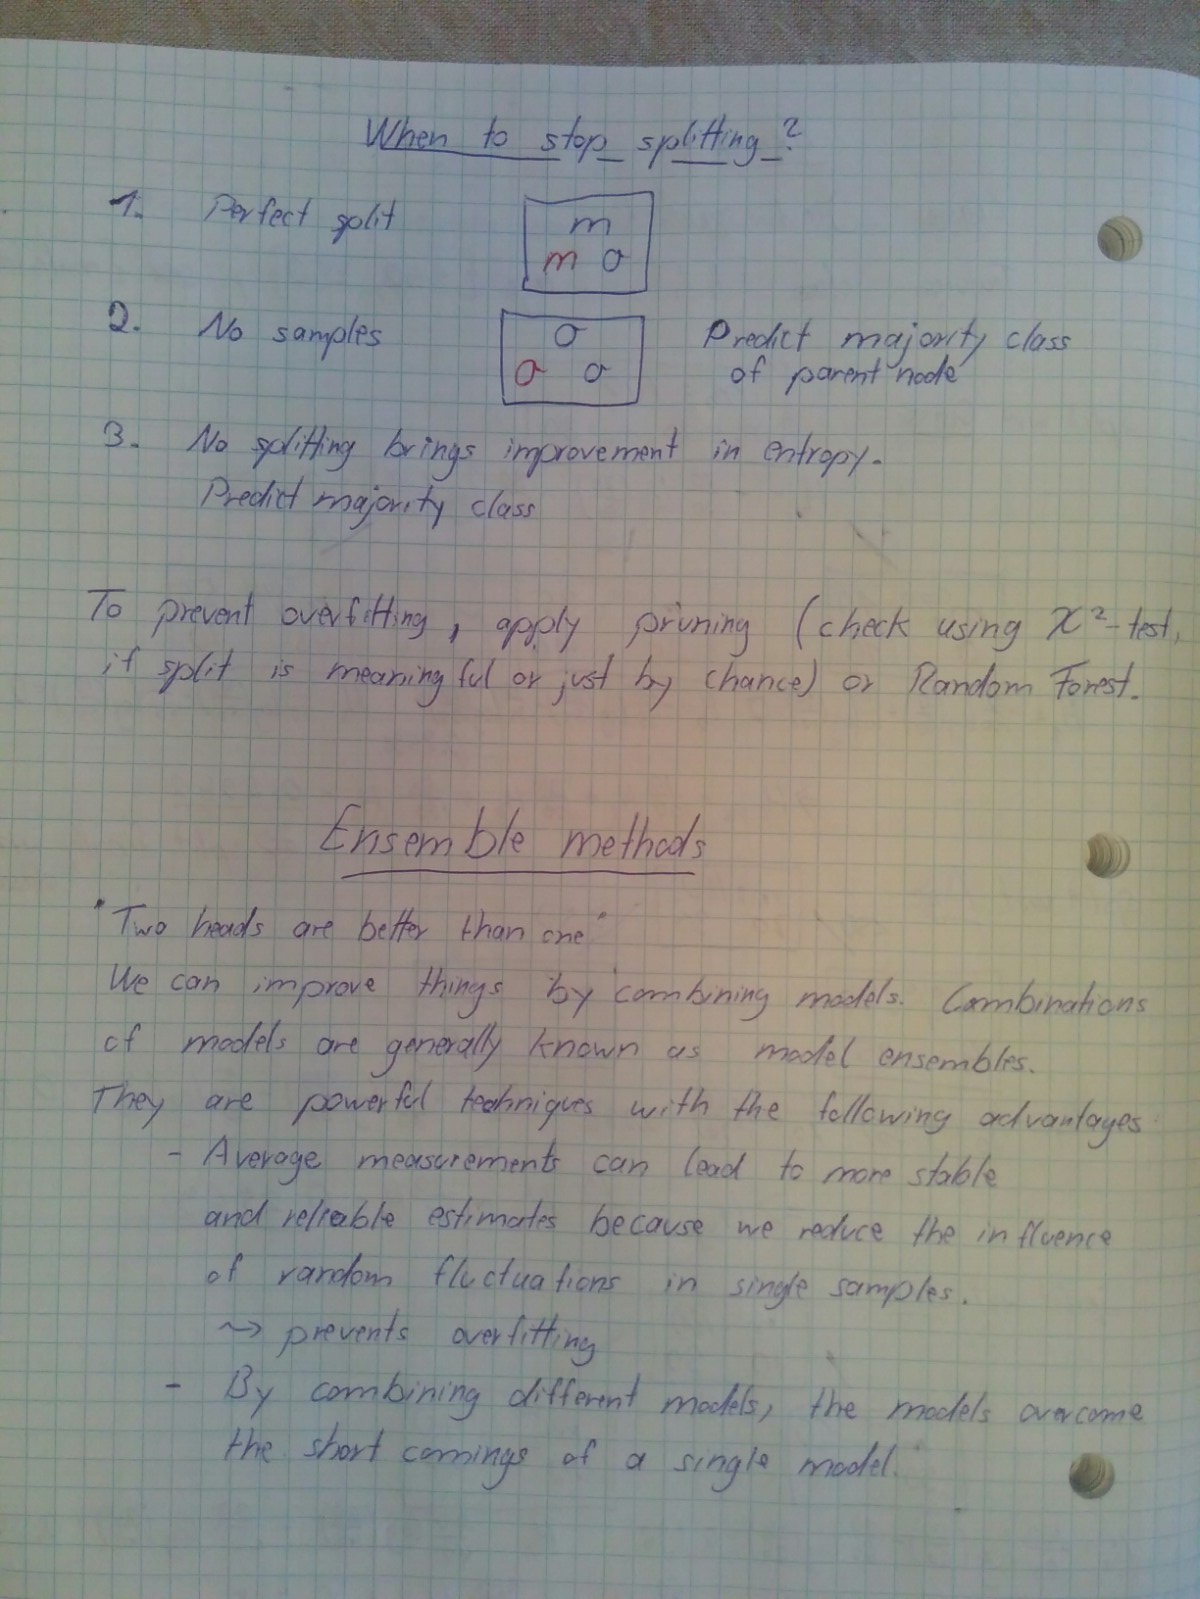 When to stop splitting?
1. Perfect split
m
m o
2. No samples
o
o o
Predict majority class
of parent node
3. No splitting brings improvement in entropy.
Predict majority class
To prevent overfitting, apply pruning (check using χ²-test,
if split is meaningful or just by chance) or Random Forest.
Ensemble methods
"Two heads are better than one"
We can improve things by combining models. Combinations
of models are generally known as model ensembles.
They are powerful techniques with the following advantages
- Average measurements can lead to more stable
and reliable estimates because we reduce the influence
of random fluctuations in single samples.
⇝ prevents overfitting
- By combining different models, the models overcome
the short comings of a single model.